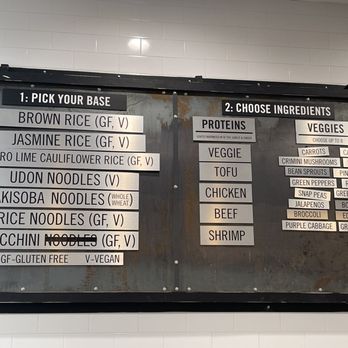 1: PICK YOUR BASE
BROWN RICE (GF, V)
JASMINE RICE (GF, V)
RO LIME CAULIFLOWER RICE (GF, V)
UDON NOODLES (V)
AKISOBA NOODLES (WHOLE WHEAT)
RICE NOODLES (GF, V)
CCHINI NOODLES (GF, V)
GF-GLUTEN FREE V-VEGAN
2: CHOOSE INGREDIENTS
PROTEINS
VEGGIE
TOFU
CHICKEN
BEEF
SHRIMP
VEGGIES
CHOOSE UP TO 6
CARROTS
CRIMINI MUSHROOMS
BEAN SPROUTS PIN
GREEN PEPPERS
SNAP PEAS GREE
JALAPENOS
BROCCOLI ED
PURPLE CABBAGE GR